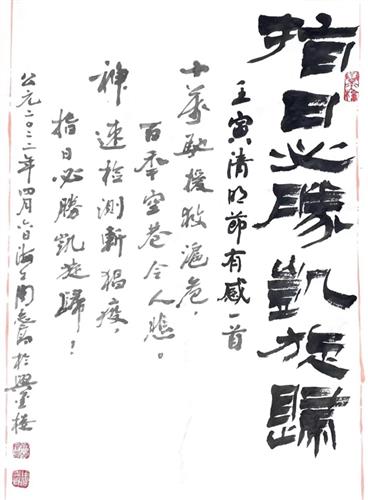 指日必勝凱旋歸
壬寅清明節有感一首
十萬馳援救滬危，
百季空巷令人悲。
神速检測斬猖疫，
指日必勝凱旋歸！
公元二〇二二年四月六日海上周志高於興金楼